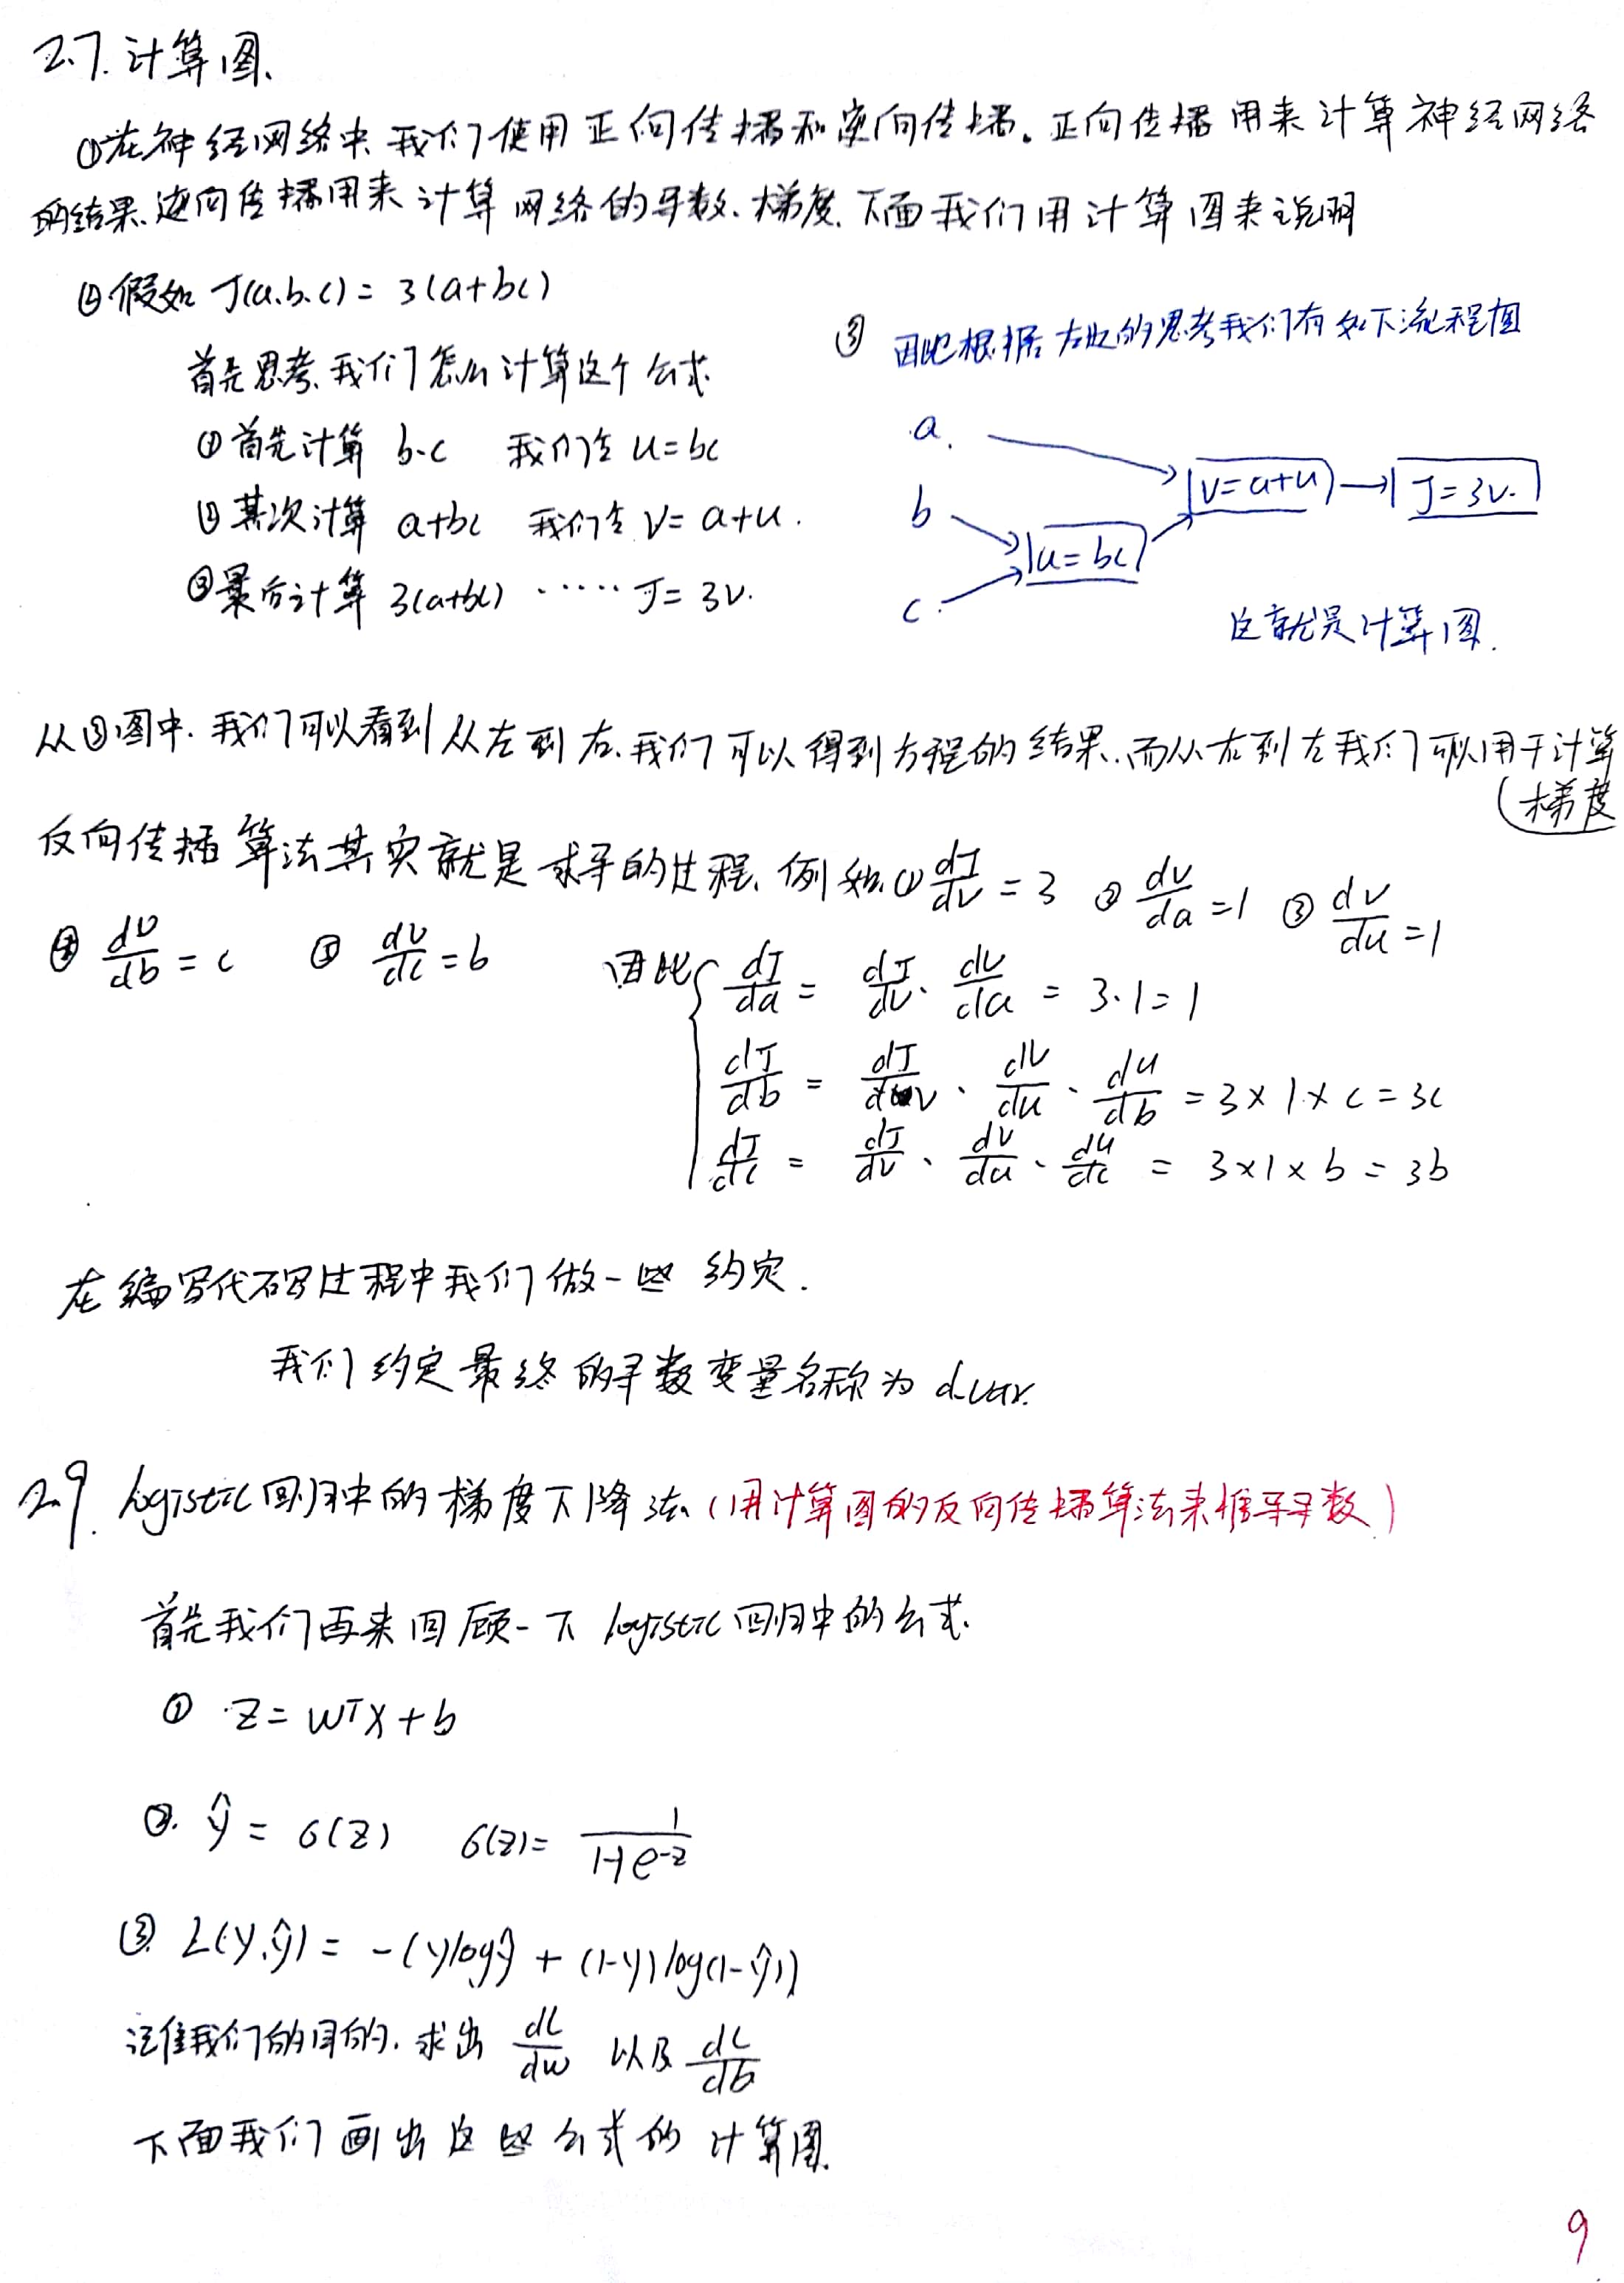 2.7. 计算图.
①在神经网络中.我们使用正向传播和逆向传播。正向传播用来计算神经网络
的结果.逆向传播用来计算网络的导数.梯度.下面我们用计算图来说明
②假如 J(a.b.c) = 3(a+bc)
首先思考.我们怎么计算这个公式.
①首先计算 b·c 我们令 u=bc
②其次计算 a+bc 我们令 v=a+u.
③最后计算 3(a+bc) ······ J=3v.
③ 因此根据左边的思考我们有如下流程图
a.
b
c.
u=bc
v=a+u
J=3v.
这就是计算图.
从③图中.我们可以看到从左到右.我们可以得到方程的结果.而从右到左我们可以用于计算
梯度
反向传播算法其实就是求导的过程.例如.① dJ/dv = 3 ② dv/da = 1 ③ dv/du = 1
④ dv/db = c ⑤ dv/dc = b
因此 { dJ/da = dJ/dv · dv/da = 3·1 = 1
dJ/db = dJ/dv · dv/du · du/db = 3×1×c = 3c
dJ/dc = dJ/dv · dv/du · du/dc = 3×1×b = 3b
在编写代码过程中我们做一些约定.
我们约定最终的导数变量名称为 d_var.
2.9. logistic回归中的梯度下降法(用计算图的反向传播算法来推导导数)
首先我们再来回顾一下 logistic回归中的公式.
① z = wᵀx + b
②. ŷ = σ(z) σ(z) = 1/(1+e^-z)
③. L(y,ŷ) = -(ylogŷ + (1-y)log(1-ŷ))
记住我们的目的.求出 dL/dw 以及 dL/db
下面我们画出这些公式的计算图.
9